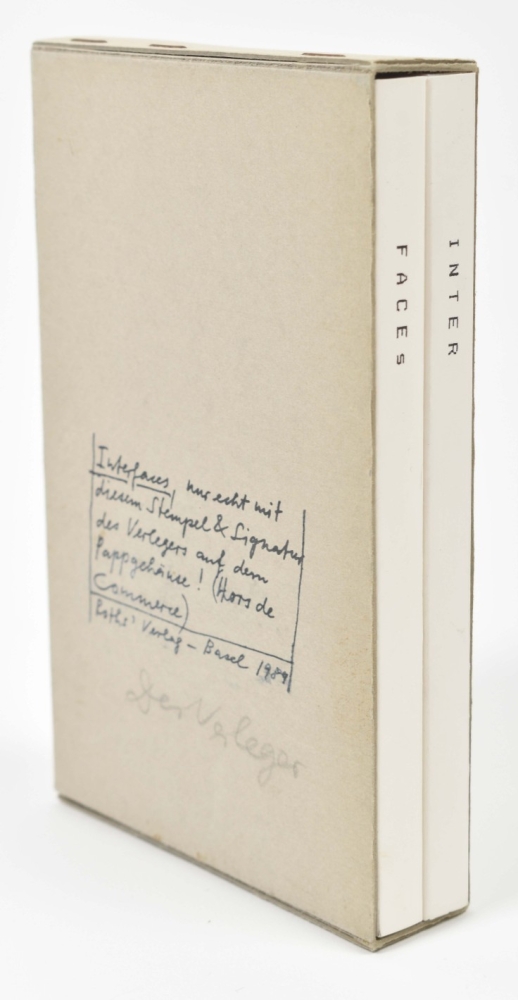 Interfaces, nur echt mit
diesem Stempel & Signatur
des Verlegers auf dem
Pappgehäuse! (Hors de
Commerce)
Roths' Verlag – Basel 1989
Der Verleger
FACES
INTER